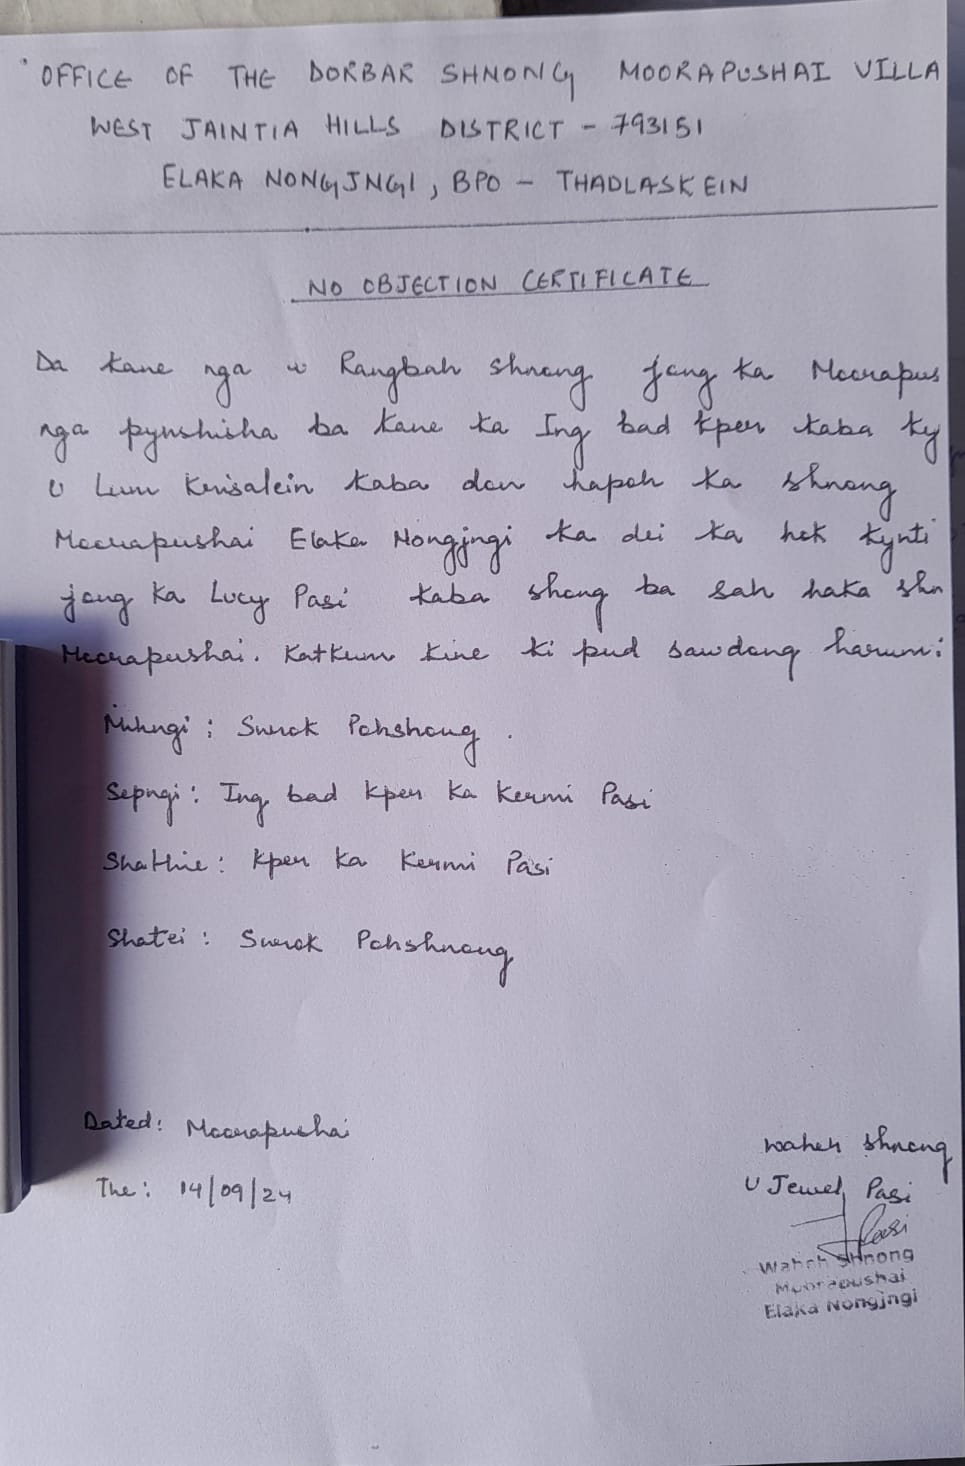 OFFICE OF THE DORBAR SHNONG MOORAPUSHAI VILLA
WEST JAINTIA HILLS DISTRICT - 793151
ELAKA NONGJNGI, BPO - THADLASKEIN
NO OBJECTION CERTIFICATE
Da kane nga u Rangbah shnong jong ka Moorapus
nga pynshisha ba kane ka Ing bad kper kaba ky
U Lum Krisalein kaba don hapoh ka shnong
Moorapushai Elaka Nongjngi ka dei ka hok kynti
jong ka Lucy Pasi kaba shong ba sah haka shn
Moorapushai. Katkum kine ki pud sawdong harum:
Mihngi: Surok Pohshong.
Sepngi: Ing bad kper ka Kermi Pasi
Shathie: Kper ka Kermi Pasi
Shatei: Surok Pohshnong
Dated: Moorapushai
The: 14/09/24
Waheh Shnong
U Jewel Pasi
Pasi
Waheh Shnong
Moorapushai
Elaka Nongjngi